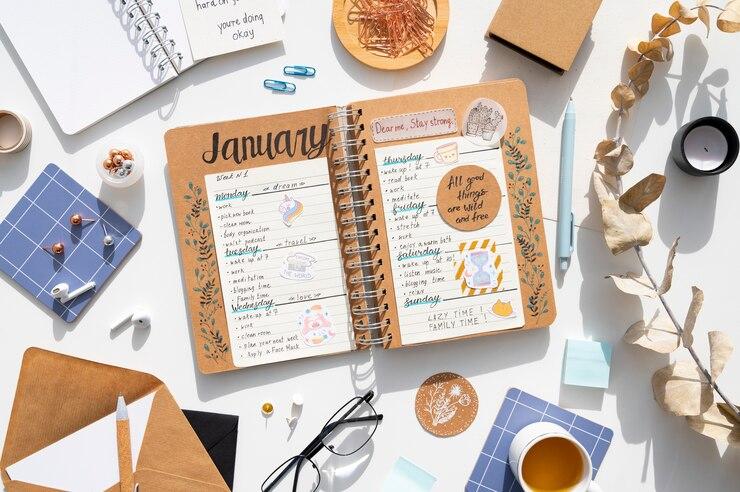 hard on
you're doing
okay
January
Week N 1
monday
dream
• work
• pick new book
• clean room
• body organisation
• waist podcast
tuesday
travel
• wake up at 7
• work
• meditation
• blogging time
• Family time
THE WORLD
Wednesday
love
• wake-up at 7
• work
• clean room
• plan your next week
• Apply a Face Mask
Dear me, Stay strong.
thursday
• wake up! at 7
• read book
• work
• meditate
friday
• wake up at 7
• stretch
• work
• enjoy a warm bath
All good
things
are wild
and free
Saturday
• wake up at
• listen music
• blogging time
• relax
Sunday
LAZY TIME !
FAMILY TIME